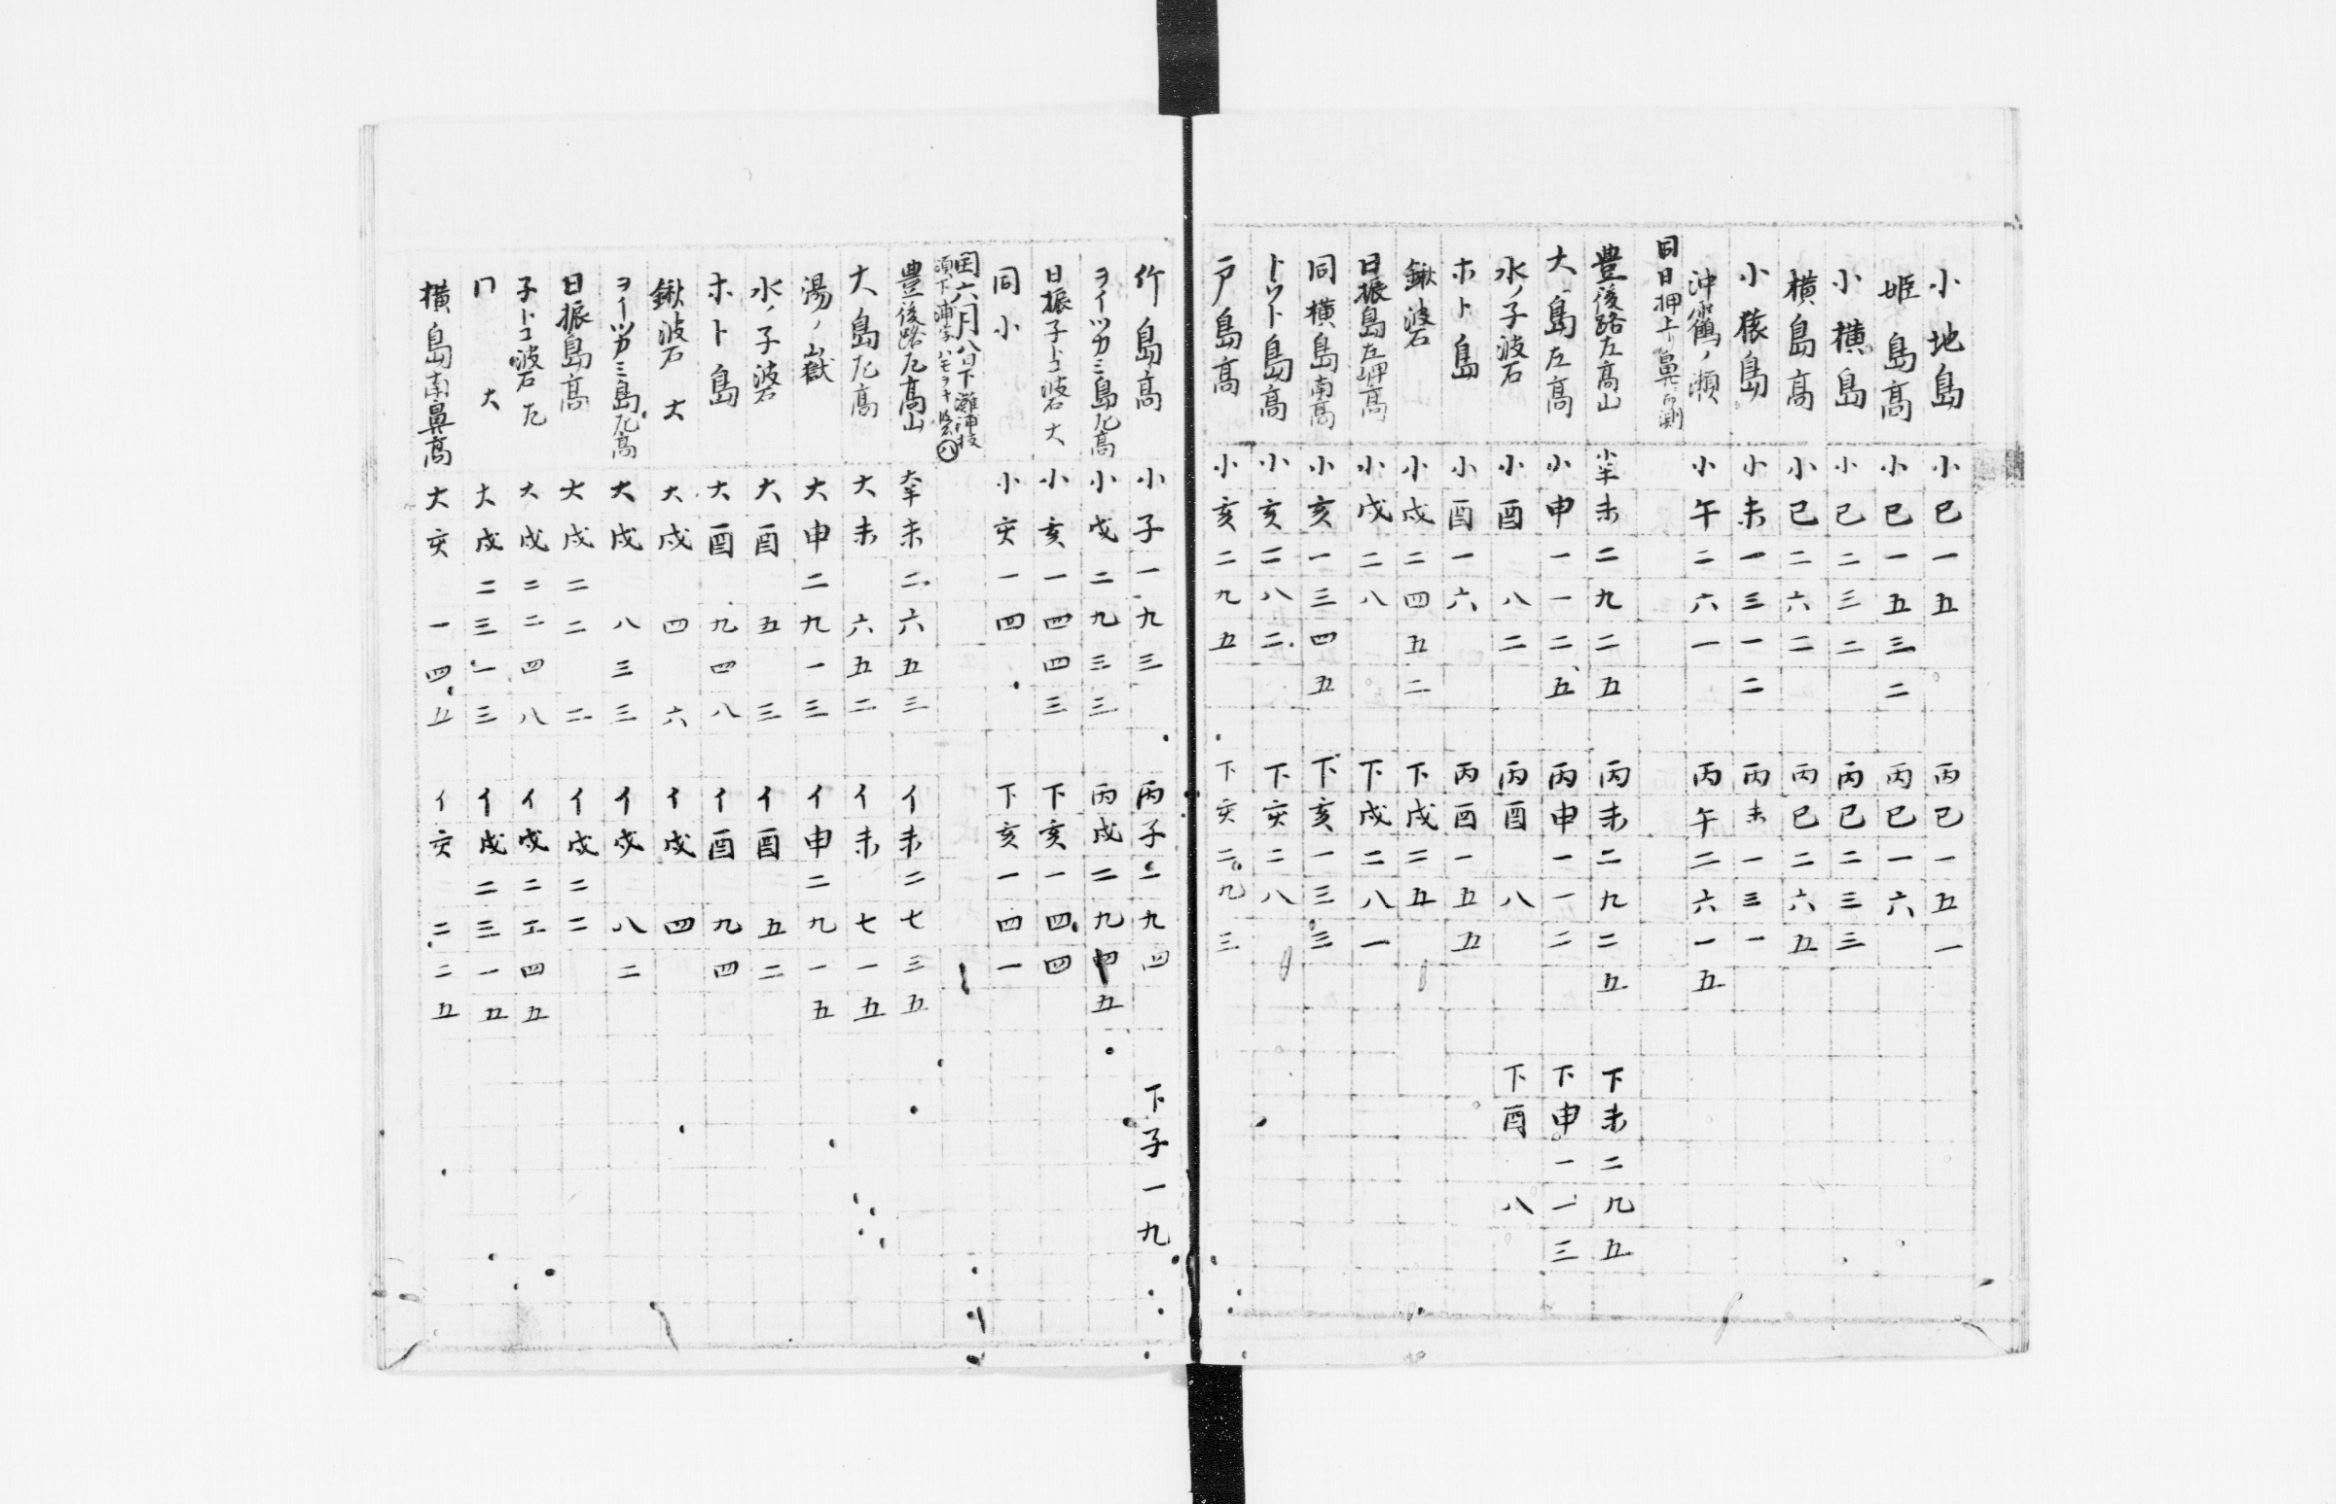 小地島 小巳一五 丙巳一五一
姫島高 小巳一五三二 丙巳一六
小横島 小巳二三二 丙巳二三三
横島高 小巳二六二 丙巳二六五
小猿島 小未一三一二 丙未一三一
沖鶴ノ瀬 小午二六一 丙午二六一五
同日押上ノ鼻ニ而測
豊後路左高山 小半未二九二五 丙未二九二五 下未二九五
大島左高 小申一一二五 丙申一一二 下申一一三
水ノ子波石 小酉八二 丙酉八 下酉八
ホト島 小酉一六 丙酉一五五
鍬波石 小戌二四五二 下戌二五
日振島左岬高 小戌二八 下戌二八一
同横島南高 小亥一三四五 下亥一三三
トツト島高 小亥二八二 下亥二八
戸島高 小亥二九五 下亥二九三
竹島高 小子一九三 丙子一九四 下子一九
ヲイツカミ島左高 小戌二九三三 丙戌二九四五
日振子トコ波石大 小亥一四四三 下亥一四四
同小 小亥一四 下亥一四一
閏六月八日下灘神技
須下浦字ハモサキ
豊後路左高山 大半未二六五三 イ未二七三五
大島左高 大未六五二 イ未七一五
湯ノ嶽 大申二九一三 イ申二九一五
水ノ子波石 大酉五三 イ酉五二
ホト島 大酉九四八 イ酉九四
鍬波石大 大戌四六 イ戌四
ヲイツカミ島左高 大戌八三三 イ戌八二
日振島高 大戌二二二 イ戌二二
子トコ波石左 大戌二二四八 イ戌二二四五
〃大 大戌二三一三 イ戌二三一五
横島南鼻高 大亥一四五 イ亥二二五